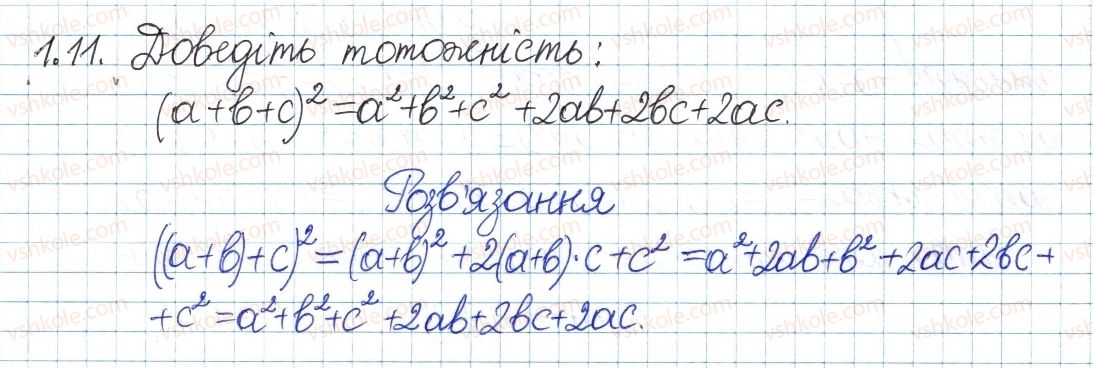 1.11. Доведіть тотожність:
(a+b+c)²=a²+b²+c²+2ab+2bc+2ac.
Розв'язання
((a+b)+c)²=(a+b)²+2(a+b)·c+c²=a²+2ab+b²+2ac+2bc+
+c²=a²+b²+c²+2ab+2bc+2ac.